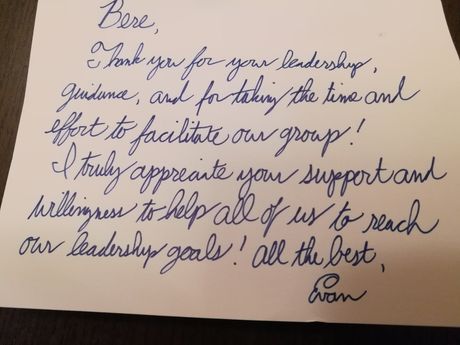 Bere,
Thank you for your leadership,
guidance, and for taking the time and
effort to facilitate our group!
I truly appreciate your support and
willingness to help all of us to reach
our leadership goals! All the best,
Evan